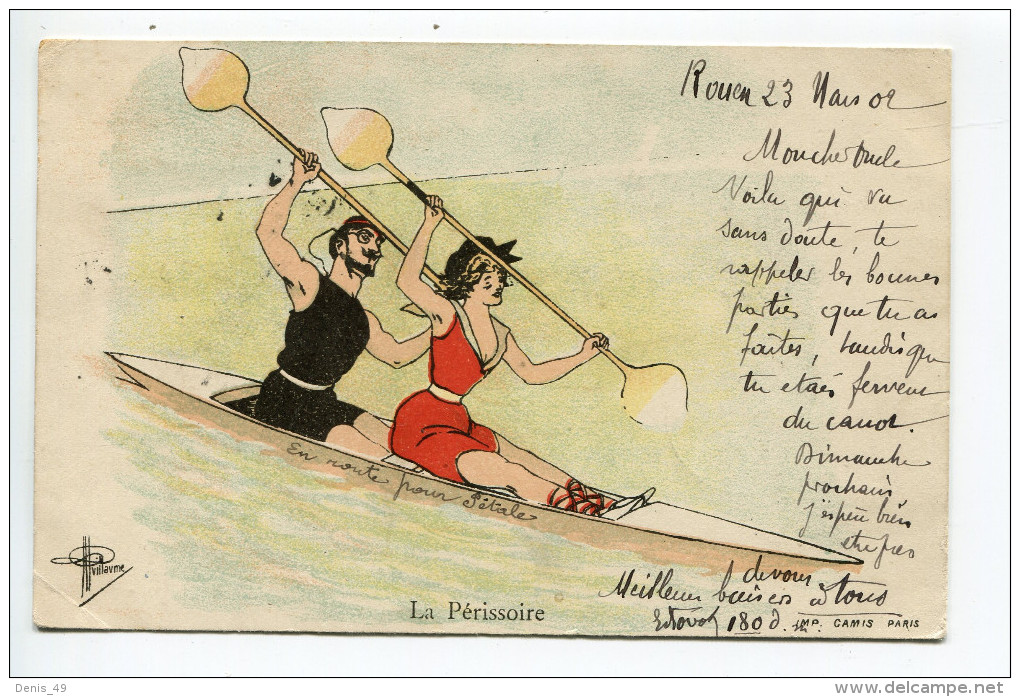 Rouen 23 Mars 02
Mon cher Oncle
Voila qui va
sans doute, te
rappeler les bonnes
parties que tu as
faites, tandis que
tu etais fervent
du canot.
Dimanche
prochain
j'espère bien
etre près
de vous
Meilleurs baisers à tous
En route pour
Avillaume
La Périssoire
IMP. CAMIS PARIS
Denis_49
www.delcampe.net